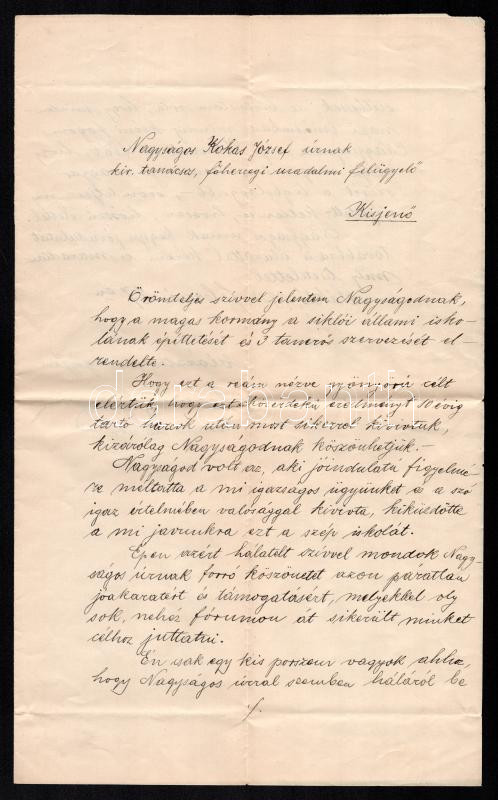 Nagyságos Kokas József úrnak
kir. tanácsos, főhercegi uradalmi felügyelő
Kisjenő
Örömteljes szívvel jelentem Nagyságodnak,
hogy a magas kormány a siklói állami isko-
lának építtetését és 3 tanerős szervezését el-
rendelte.
Hogy ezt a reám nézve gyönyörű célt
elértük, hogy ezt közérdekü eredményt 10 évig
tartó harcok után most sikerrel kivivtuk,
kizárólag Nagyságodnak köszönhetjük.-
Nagyságod volt az, aki jóindulatu figyelmé-
re méltatta a mi igazságos ügyünket és a szó
igaz értelmében valósággal kivívta, kiküzdötte
a mi javunkra ezt a szép iskolát.
Épen azért hálatelt szívvel mondok Nagy-
ságos úrnak forró köszönetet azon páratlan
jóakaratért és támogatásért, melyekkel oly
sok, nehéz fórumon át sikerült minket
célhoz juttatni.
Én csak egy kis porszem vagyok ahhoz,
hogy Nagyságos úrral szemben háláról be
./.
darabanth